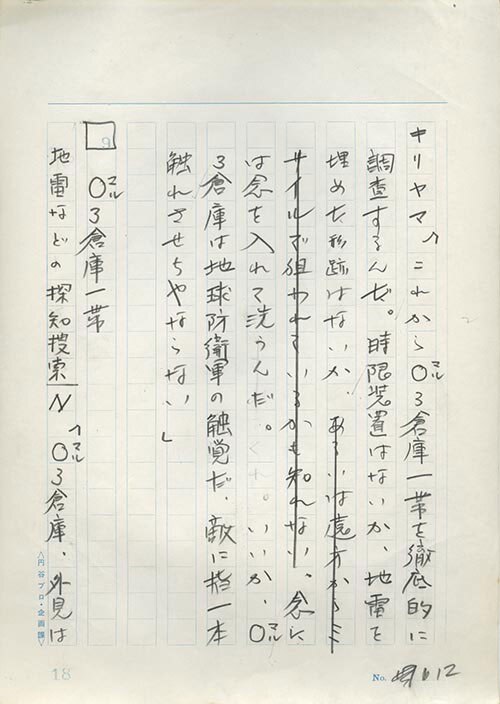 キリヤマ「これから〇3倉庫一帯を徹底的に
マル
調査するんだ。時限装置はないか、地雷を
埋めた形跡はないか、あるいは遠方からミ
サイルで狙われているかも知れない。念に
は念を入れて洗うんだ。くれ。いいか、〇
マル
3倉庫は地球防衛軍の触覚だ、敵に指一本
触れさせちゃならない」
9
〇3倉庫一帯
マル
地雷などの探知捜索
N「〇3倉庫、外見は
マル
〈円谷プロ・企画課〉
18
No. 612